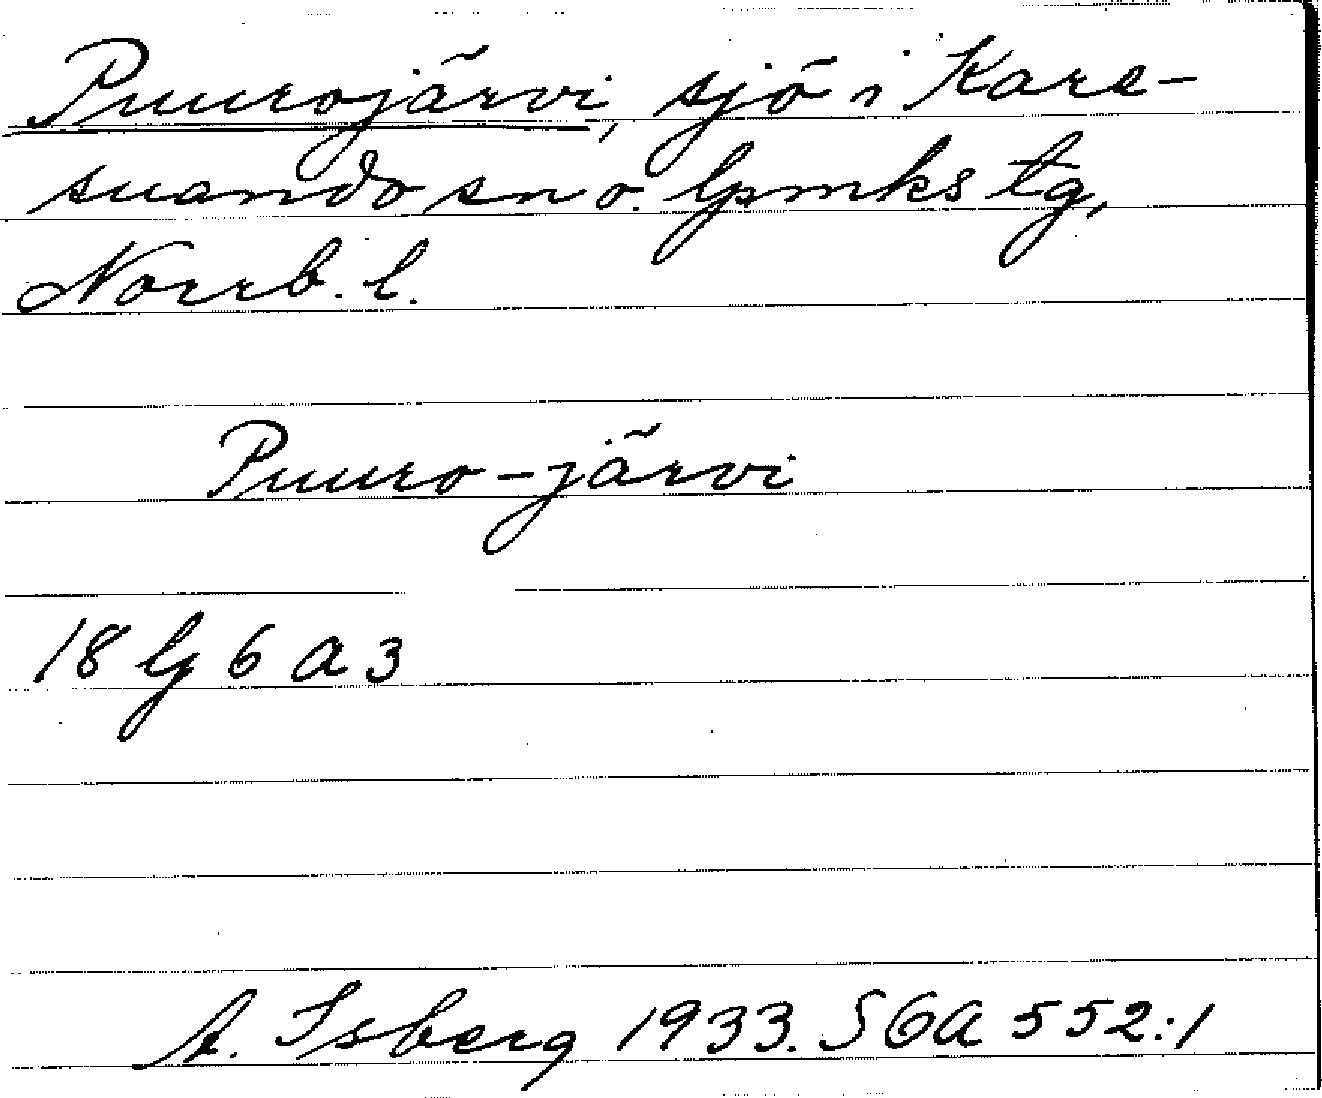 Puurojärvi, sjö i Kare-
suando sn o. lpmks tg,
Norrb. l.
Puuro-järvi
18 G 6 a 3
A. Isberg 1933. SOA 552:1